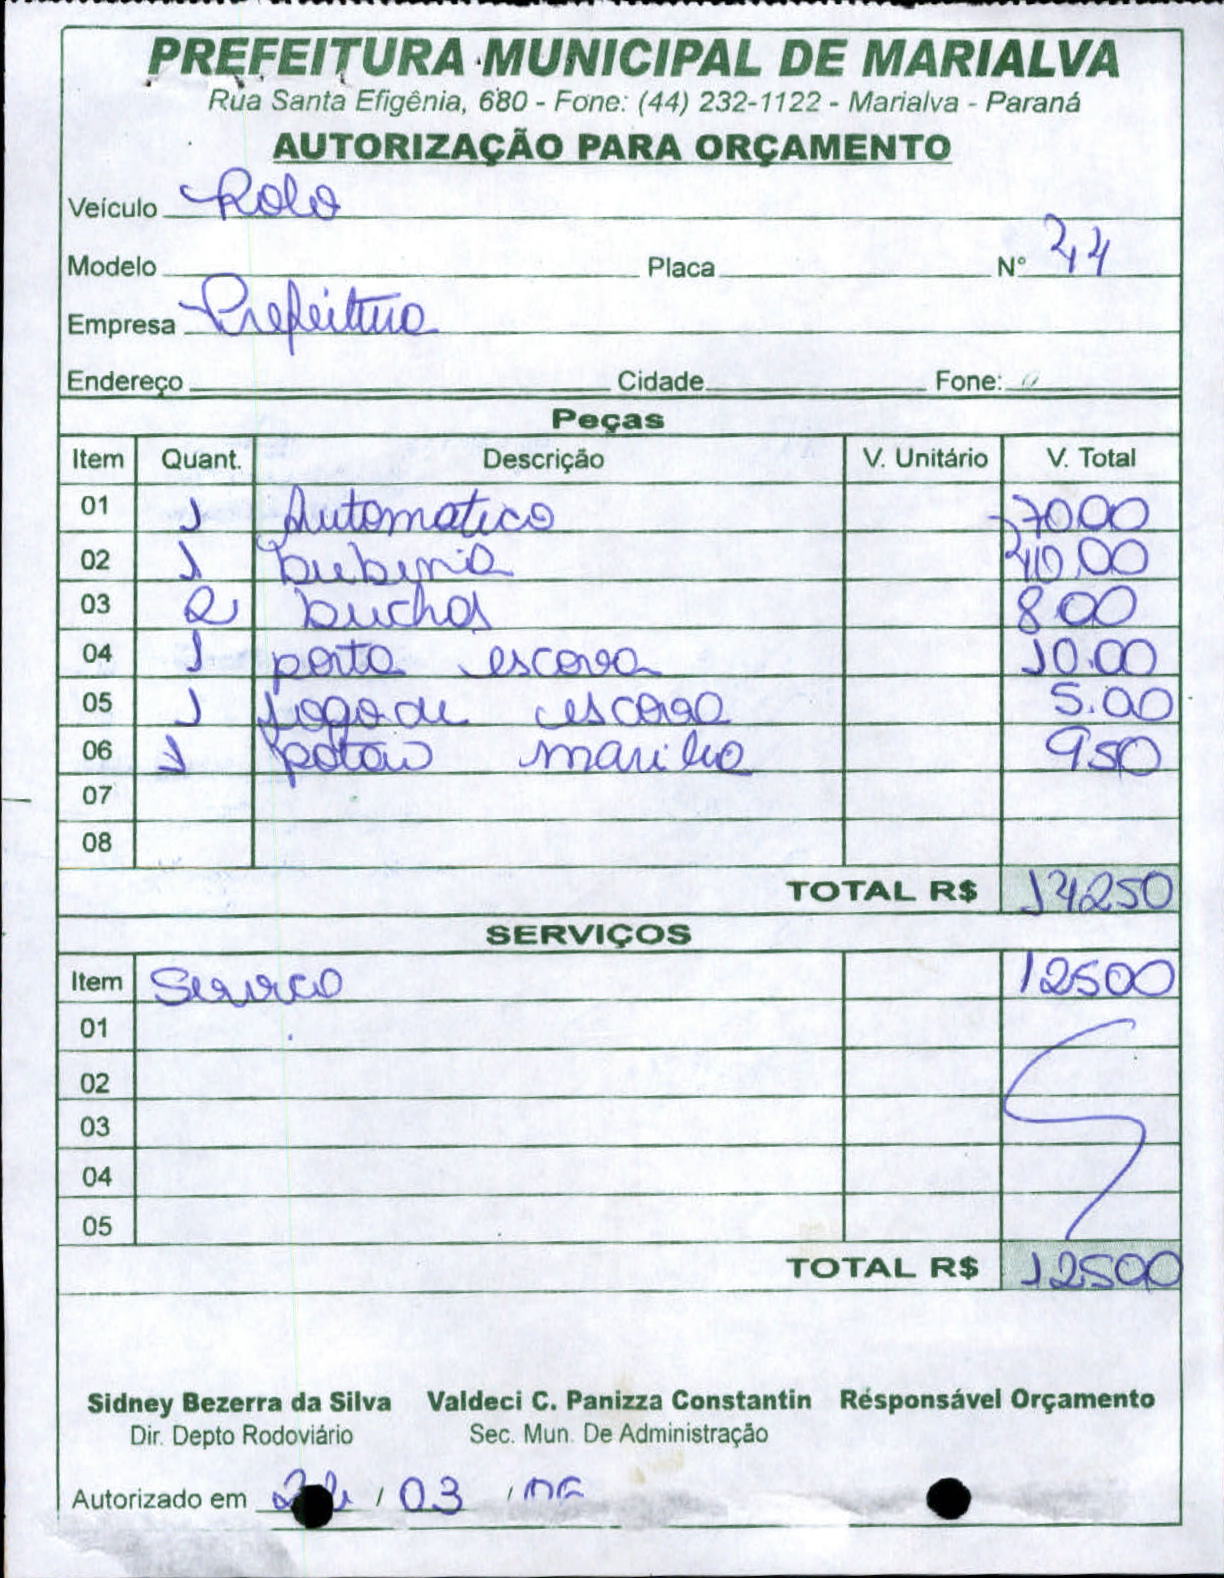 PREFEITURA MUNICIPAL DE MARIALVA
Rua Santa Efigênia, 680 - Fone: (44) 232-1122 - Marialva - Paraná
AUTORIZAÇÃO PARA ORÇAMENTO
Veículo Rolo
Modelo Placa Nº
Empresa Prefeitura
Endereço Cidade Fone:
Peças
Item Quant. Descrição V. Unitário V. Total
01 1 Automatico 70.00
02 1 bubina 40.00
03 2 buchas 8.00
04 1 porta escova 10.00
05 1 jogo de escova 5.00
06 1 9.50
07
08
TOTAL R$ 142.50
SERVIÇOS
Item Serviço 125.00
01
02
03
04
05
TOTAL R$ 125.00
Sidney Bezerra da Silva Valdeci C. Panizza Constantin Responsável Orçamento
Dir. Depto Rodoviário Sec. Mun. De Administração
Autorizado em / 03 /